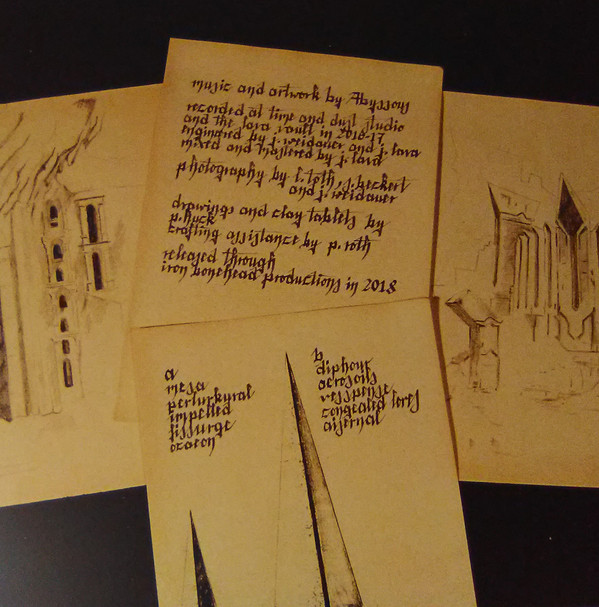 music and artwork by Abyssous
recorded at time and dust studio
and the lava vault in 2016-17
engineered by j. weidauer and j. lara
mixed and mastered by j. lard
photography by l. toth, j. beckert
and j. weidauer
drawings and clay tablets by
p. huck
crafting assistance by p. roth
released through
iron bonehead productions in 2018
a
mesa
perturkural
impelled
fissurge
ocaeon
b
diphouf
aerosoils
vesspense
congealed
aisernal